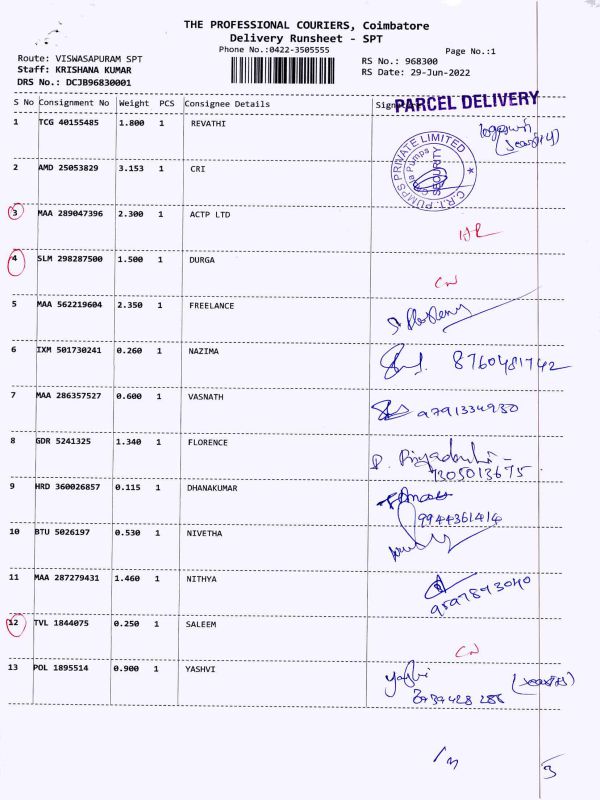 THE PROFESSIONAL COURIERS, Coimbatore
Delivery Runsheet - SPT
Phone No.:0422-3505555
Page No.:1
Route: VISWASAPURAM SPT
Staff: KRISHANA KUMAR
DRS No.: DCJB96830001
RS No.: 968300
RS Date: 29-Jun-2022
S No Consignment No Weight PCS Consignee Details
PARCEL DELIVERY
1 TCG 40155485 1.800 1 REVATHI
2 AMD 25053829 3.153 1 CRI
C.R.I. PUMPS PRIVATE LIMITED
SECURITY
3 MAA 289047396 2.300 1 ACTP LTD
4 SLM 298287500 1.500 1 DURGA
CN
5 MAA 562219604 2.350 1 FREELANCE
6 IXM 501730241 0.260 1 NAZIMA
8760481742
7 MAA 286357527 0.600 1 VASNATH
9791334930
8 GDR 5241325 1.340 1 FLORENCE
7305013675
9 HRD 360026857 0.115 1 DHANAKUMAR
9944361414
10 BTU 5026197 0.530 1 NIVETHA
11 MAA 287279431 1.460 1 NITHYA
9597893040
12 TVL 1844075 0.250 1 SALEEM
CN
13 POL 1895514 0.900 1 YASHVI